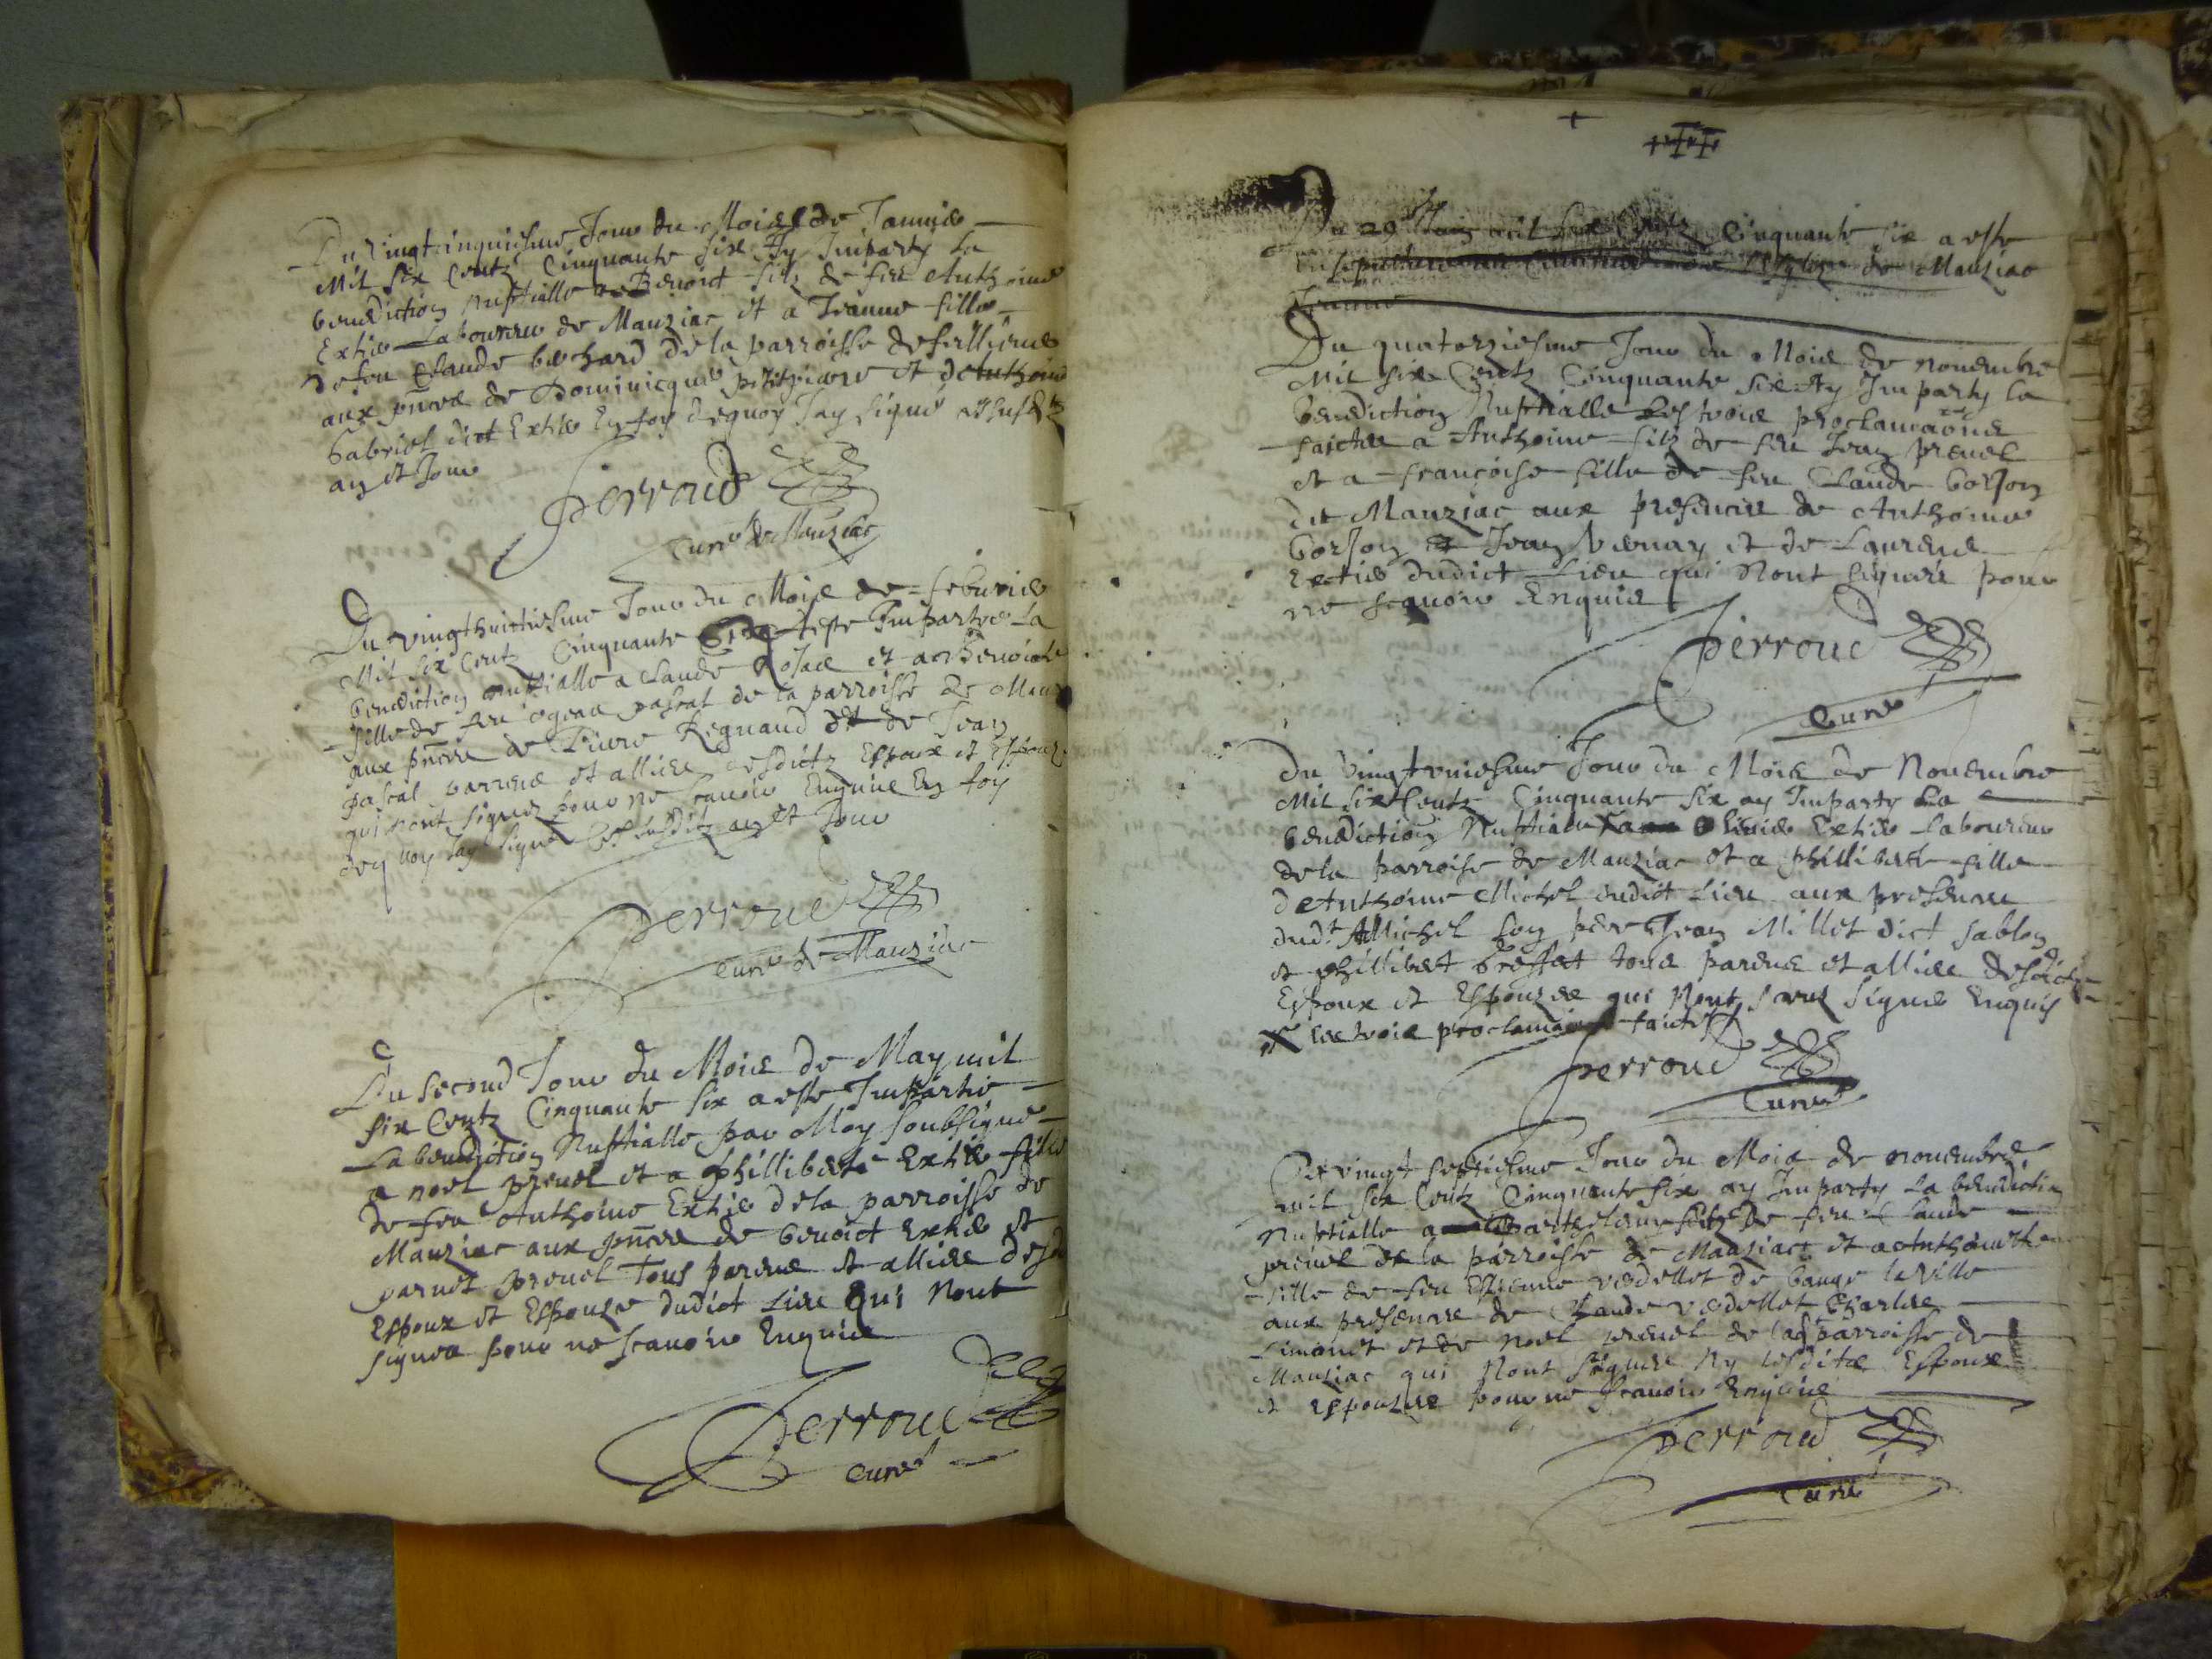 Du vingtcinquiesme Jour du Mois de Januier
Mil six Centz Cinquante six Jy Imparty La
benediction nuptialle a Benoict filz de feu Anthoine
Extier Laboureur de Manziac et a Jeanne fille
de feu Claude bochard de la parroisse de
aux pnces de Dominicque et dAnthoine
Gabriel dict Extier En foy dequoy Jay signé
an et Jour
Perroud
Curé de Manziac
Du vingthuictiesme Jour du Mois de feburier
Mil six Centz Cinquante Six a este Impartye La
benediction nuptialle a Claude et a Benoiste
fille de feu pascal de la parroisse de Manz
aux pnces de Pierre Regnaud et de Jean
pascal parrens et alliez desdictz Espoux et Espouze
qui nont signez pour ne scauoir Enquis En foy
dequoy Jay signé Les susditz an et Jour
Perroud
Curé de Manziac
Du second Jour du Mois de May mil
six Centz Cinquante six a este Impartie
La benediction Nuptialle par Moy soubsigné
a noel preuel et a Phillibarte Extier fille
de feu Anthoine Extier de la parroisse de
Manziac aux pnces de benoict Extier et
parnet preuel Tous parens et alliez desd
Espoux et Espouze dudict Lieu Qui Nont
signez pour ne scauoir Enquis
Perroud
Curé
Du 29 Juin mil six Centz Cinquante six a este
Ensepulturé au Cimetiere de lesglise de Manziac
Jeanne
Du quatorziesme Jour du Mois de nouembre
Mil six Centz Cinquante six Ay Imparty la
benediction Nuptialle Les trois proclamaons
faictes a Anthoine filz de feu Jean preuel
et a francoise fille de feu Claude Gorjon
de Manziac aux presences de Anthoine
Gorjon et Jean et de Laurens
Extier dudict Lieu qui Nont signez pour
ne scauoir Enquis
Perroud
Curé
Du Vingt uniesme Jour du Mois de Nouembre
Mil six Centz Cinquante six ay Imparty La
benediction Nuptialle a Oliuier Extier Laboureur
de la parroisse de Manziac et a Phillibarte fille
dAnthoine Michel dudict Lieu aux presences
dudt Michel son pere Jean Millet dict sablon
et Phillibert brossat tous parens et alliez desdictz
Espoux et Espouzee qui Nont signé Enquis
les trois proclamaons faictes
Perroud
Curé
Du vingt septiesme Jour du Mois de nouembre
mil six Centz Cinquante six ay Imparty La benediction
Nuptialle a Bartholome filz de feu Claude
preuel de la parroisse de Manziac et a Anthoinette
fille de feu Estienne vedellet de bauge la Ville
aux presences de Claude vedellet Charles
Limonet et de noel preuel de lad parroisse de
Manziac qui Nont signez Ny lesditz Espoux
et Espouzee pour ne scauoir Enquis
Perroud
Curé